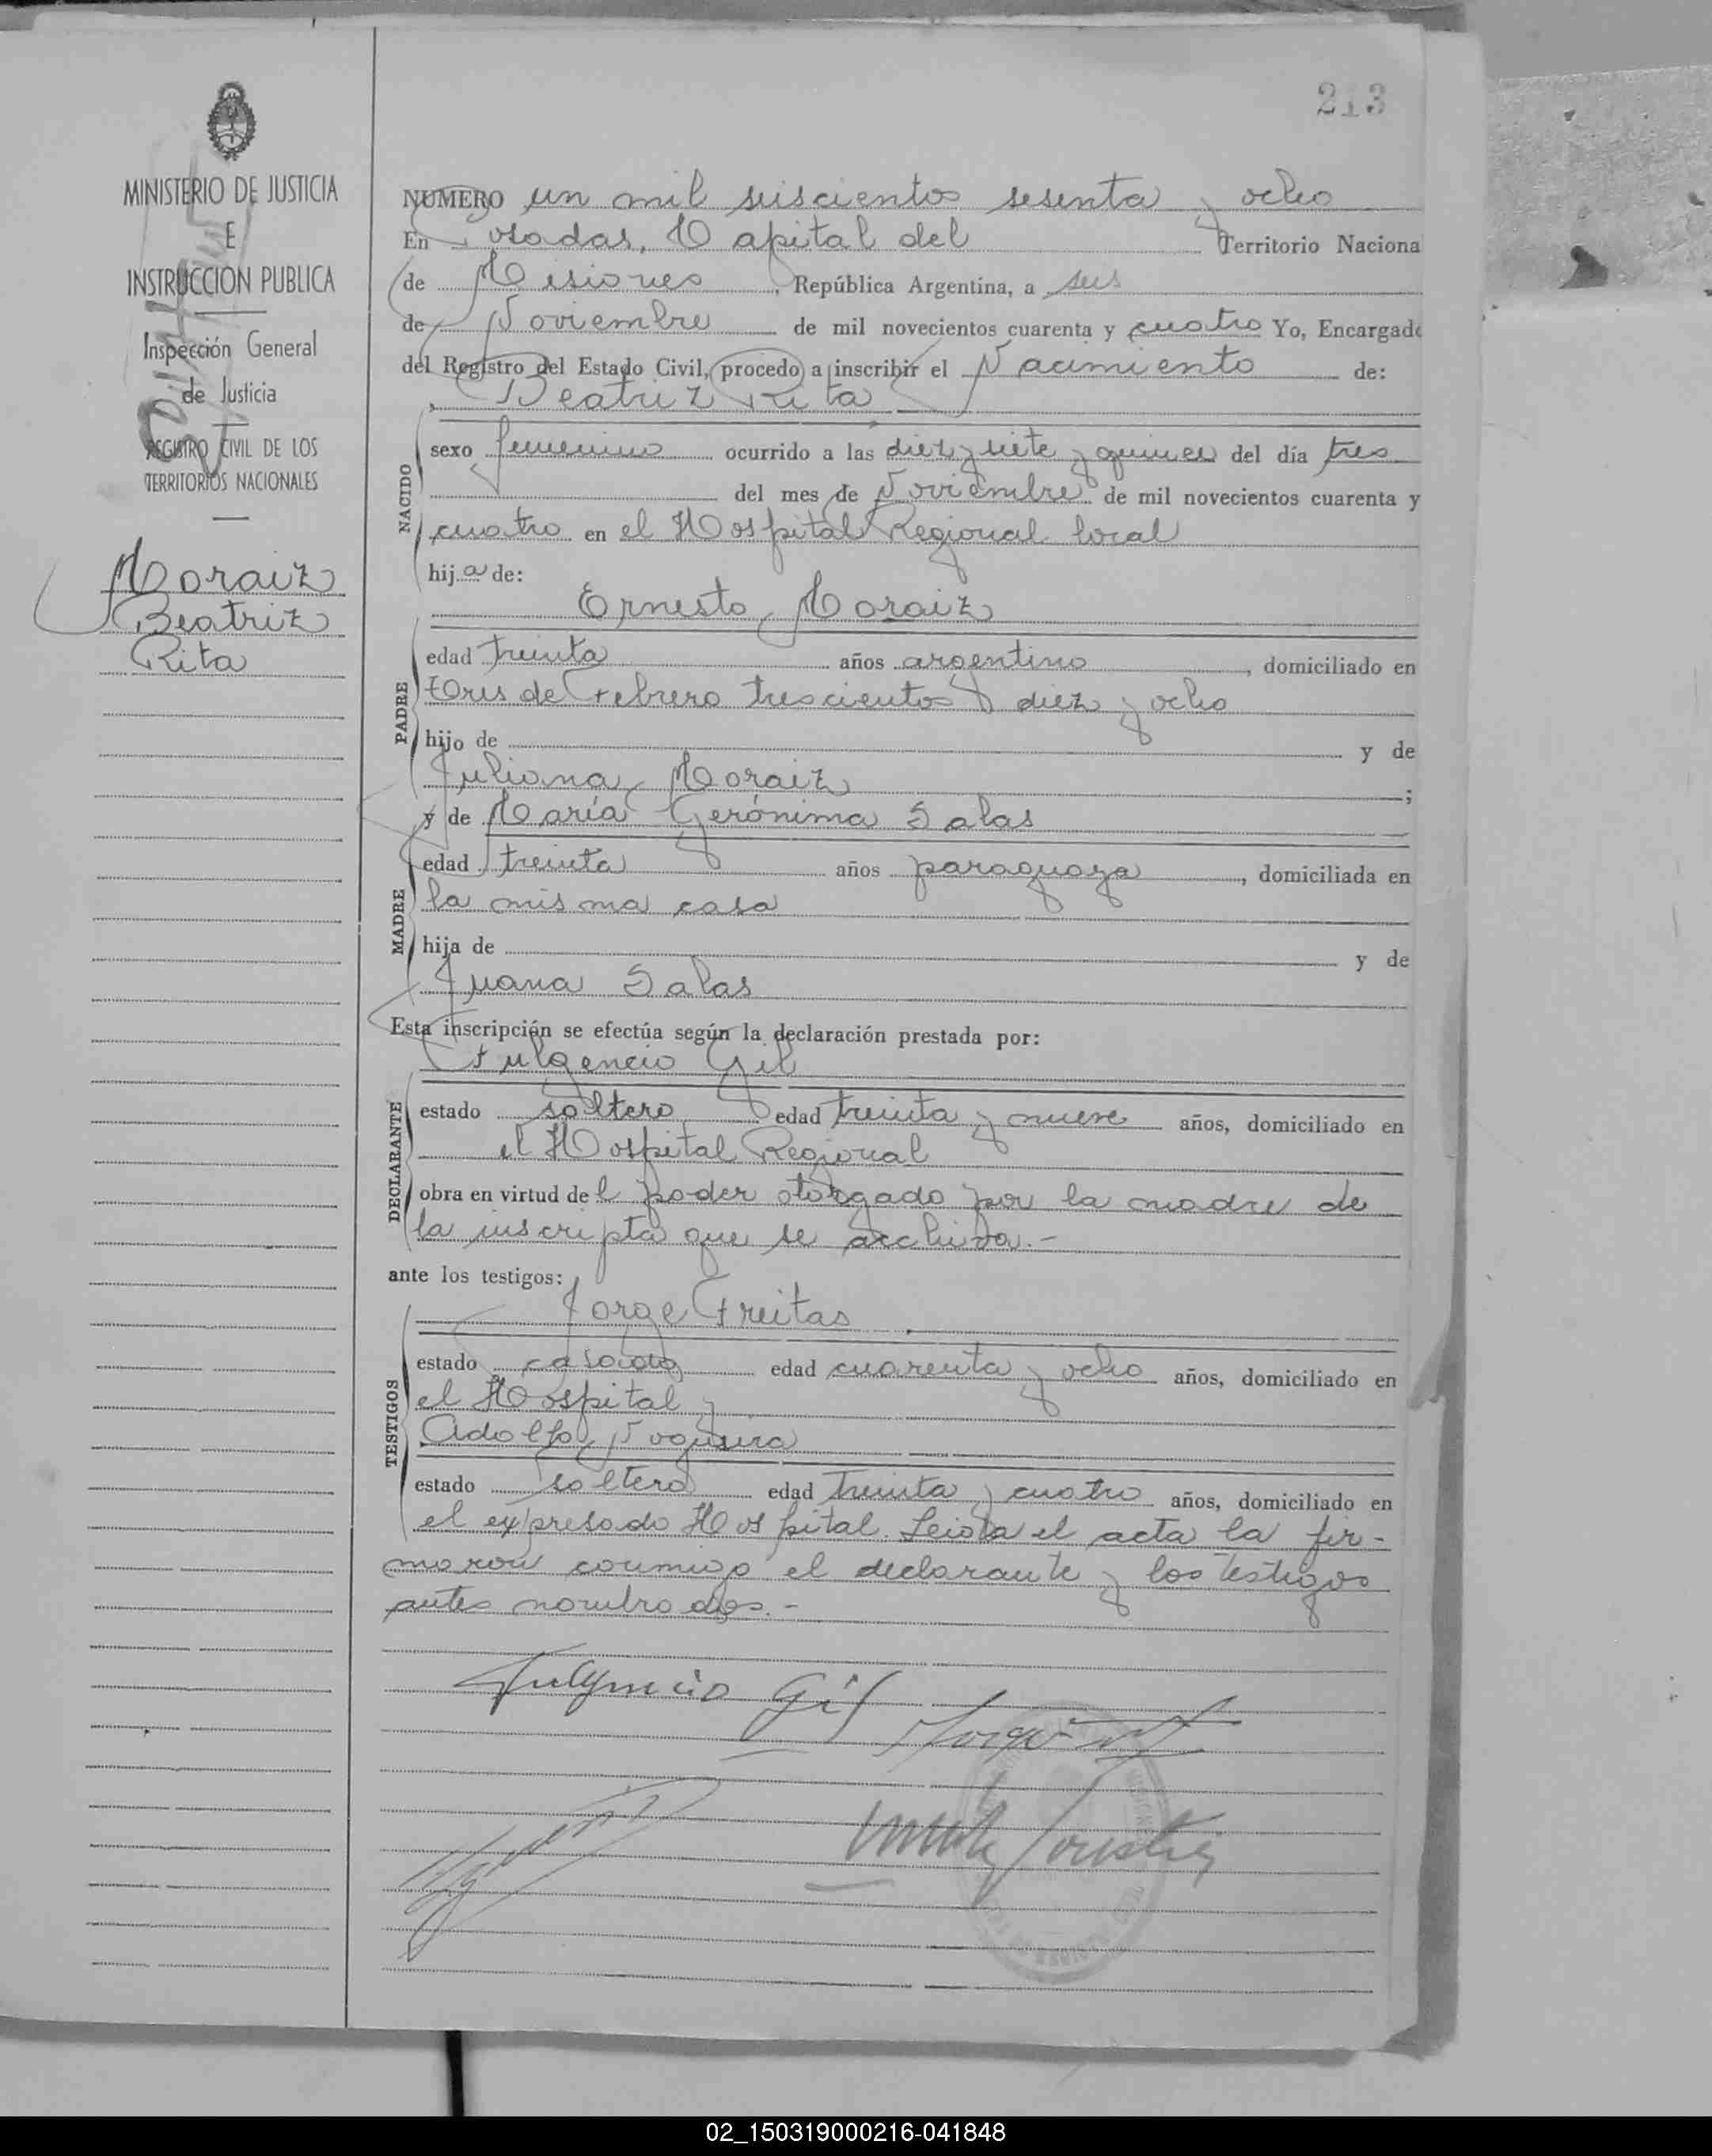 213
MINISTERIO DE JUSTICIA
E
INSTRUCCION PUBLICA
Inspección General
de Justicia
REGISTRO CIVIL DE LOS
TERRITORIOS NACIONALES
Moraiz
Beatriz
Rita
NUMERO un mil seiscientos sesenta y ocho
En Posadas, Capital del Territorio Naciona
de Misiones, República Argentina, a seis
de Noviembre de mil novecientos cuarenta y cuatro Yo, Encargado
del Registro del Estado Civil, procedo a inscribir el Nacimiento de:
Beatriz Rita
NACIDO
sexo femenino ocurrido a las diez y siete y quince del día tres
del mes de Noviembre de mil novecientos cuarenta y
cuatro en el Hospital Regional local
hija de:
Ernesto Moraiz
PADRE
edad treinta años argentino, domiciliado en
Tres de Febrero trescientos diez y ocho
hijo de y de
Juliana Moraiz ;
y de María Gerónima Salas
MADRE
edad treinta años paraguaya, domiciliada en
la misma casa
hija de y de
Juana Salas
Esta inscripción se efectúa según la declaración prestada por:
Fulgencio Gil
DECLARANTE
estado soltero edad treinta y nueve años, domiciliado en
el Hospital Regional
obra en virtud del poder otorgado por la madre de
la inscripta que se archiva.-
ante los testigos:
Jorge Freitas
TESTIGOS
estado casado edad cuarenta y ocho años, domiciliado en
el Hospital y
Adolfo Noguera
estado soltero edad treinta y cuatro años, domiciliado en
el expresado Hospital. Leida el acta la fir-
maron conmigo el declarante y los testigos
antes nombrados.-
Fulgencio Gil
02_150319000216-041848